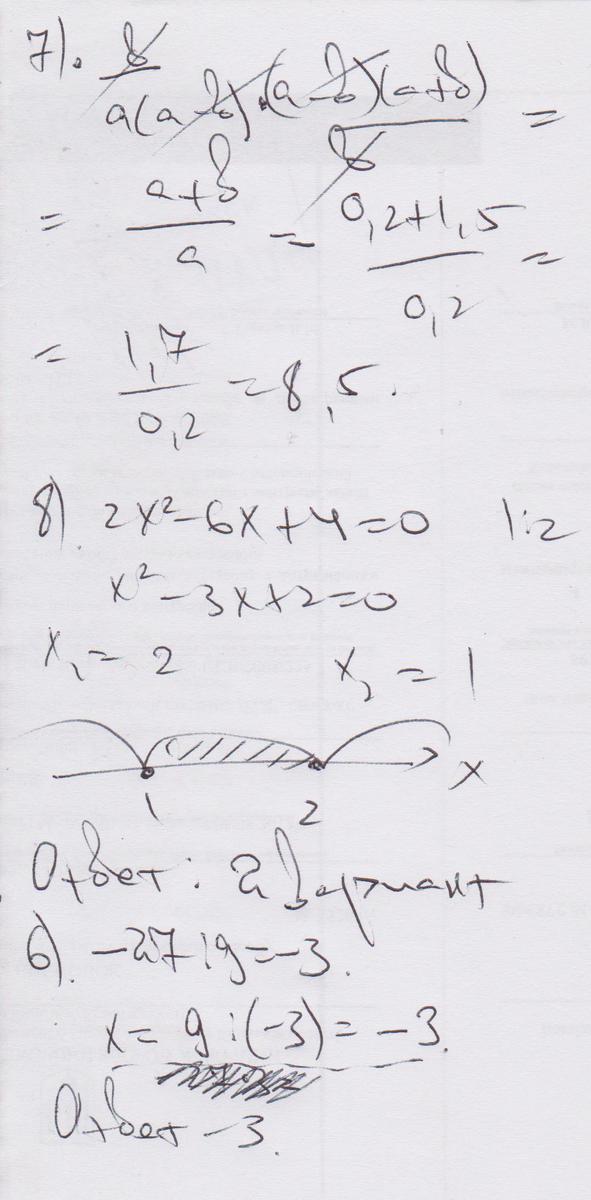 7). b
a(a-b) · (a-b)(a+b) =
b
= a+b / a = 0,2+1,5 / 0,2 =
= 1,7 / 0,2 = 8,5.
8). 2x²-6x+4=0 |:2
x²-3x+2=0
x₁ = 2 x₂ = 1
x
1 2
Ответ: 2 вариант
6). -27:9=-3.
x= 9:(-3)= -3.
Ответ -3.